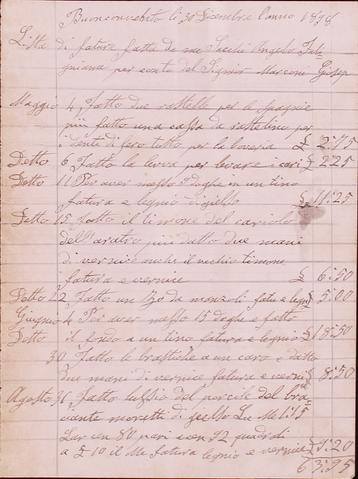 Buonconvento li 30 Dicembre l'anno 1898
Lista di fature fatte da me Angelo
per conto del Signor Marconi Giusep
Maggio 4 Fatto due rastelle per le
più fatto una cassa da rastelino per
denti di fero tutto per la £ 2:75
Detto 6 Fatto la leva per £ 2 25
Detto 11 Per aver messo 9 doghe in un tino
fatura e legnio di gielso £ 11:25
Detto 15 Fatto il timone del cariolo
dell'aratro più datto due mani
di vernice anche il vechio timone
fatura e vernice £ 6:50
Detto 22 Fatto un da manzoli fatu e legni £ 5:00
Giugnio 4 Per aver messo 15 doghe e fatto
Detto il fondo a un tino fatura e legnio £ 18:50
30 Fatto le a un caro e datto
due mani di vernice fatura e vernice £ 8:50
Agosto 31 Fatto del porcile del bra
ciante moretti di gielso Lu M 1:15
Lar cm 80 pari cm 92 quadrati
a £ 10 il Me fatura legnio e vernice £ 9:20